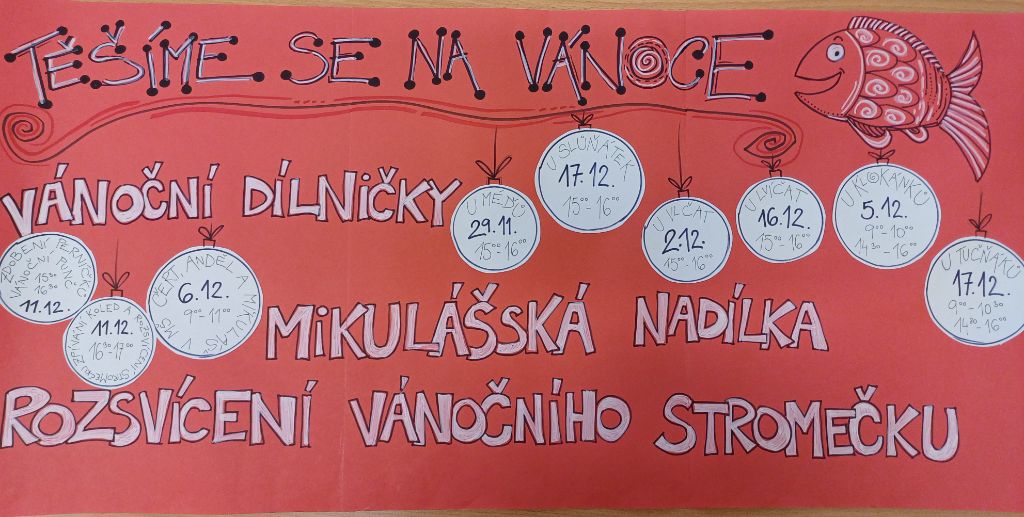 TĚŠÍME SE NA VÁNOCE
VÁNOČNÍ DÍLNIČKY
U MÉĎŮ
29.11.
15⁰⁰-16⁰⁰
U SLŮŇÁTEK
17.12.
15⁰⁰-16⁰⁰
U VLČAT
2.12.
15⁰⁰-16⁰⁰
U LVÍČAT
16.12.
15⁰⁰-16⁰⁰
U KLOKÁNKŮ
5.12.
9⁰⁰-10⁰⁰
14³⁰-16⁰⁰
U TUČŇÁKŮ
17.12.
9⁰⁰-10³⁰
14³⁰-16⁰⁰
ZDOBENÝ PERNÍČKŮ
VÁNOČNÍ PUNČ
15³⁰
16³⁰
11.12.
ZPÍVÁNÍ KOLED A ROZSVÍCENÍ STROMEČKU
11.12.
16³⁰-17⁰⁰
ČERT, ANDĚL A MIKULÁŠ V MŠ
6.12.
9⁰⁰-11⁰⁰
MIKULÁŠSKÁ NADÍLKA
ROZSVÍCENÍ VÁNOČNÍHO STROMEČKU